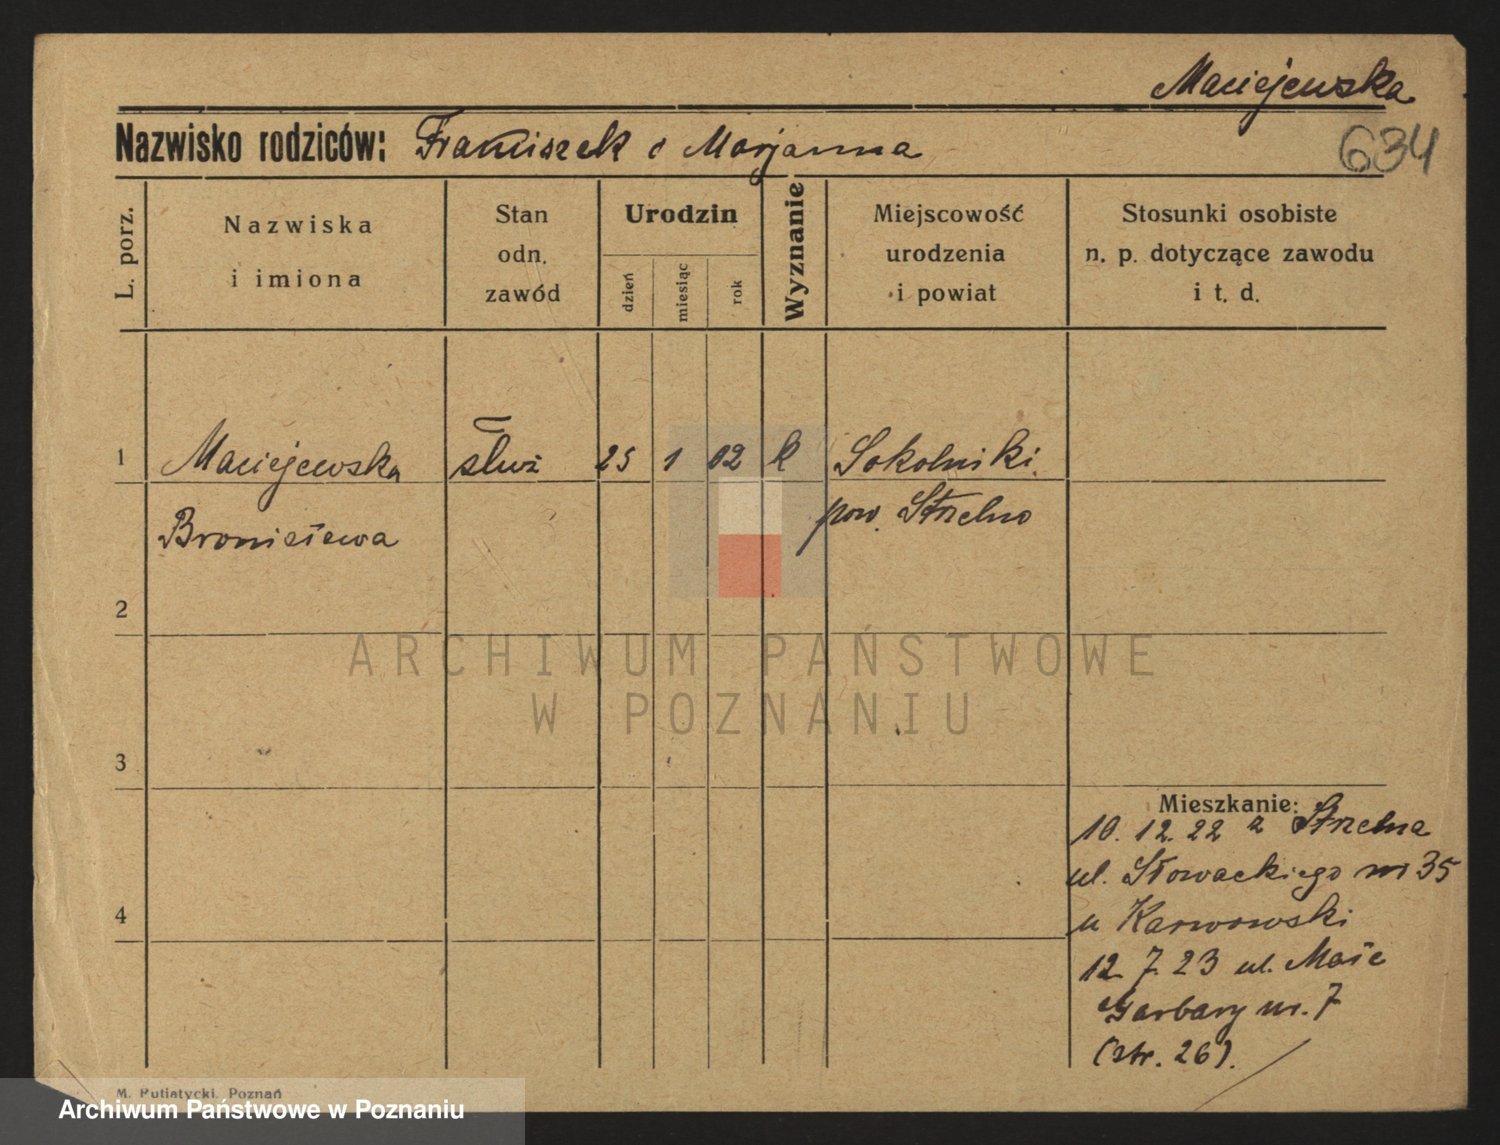 Maciejewska
Nazwisko rodziców: Franciszek i Marjanna
634
L. porz.
Nazwiska
i imiona
Stan
odn.
zawód
Urodzin
dzień
miesiąc
rok
Wyznanie
Miejscowość
urodzenia
i powiat
Stosunki osobiste
n. p. dotyczące zawodu
i t. d.
1 Maciejewska służ 25 1 02 k Sokolniki
Bronisława pow. Strzelno
2
ARCHIWUM PAŃSTWOWE
W POZNANIU
3
Mieszkanie:
10. 12. 22 z Strzelna
ul. Słowackiego nr 35
4
u Karwowski
12. 7. 23 ul. Małe
Garbary nr. 7
(str. 26).
M. Putiatycki, Poznań
Archiwum Państwowe w Poznaniu